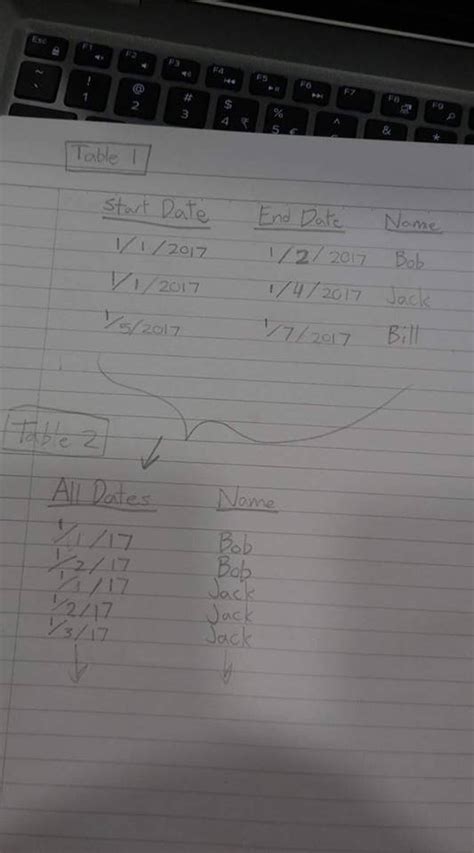 Esc F1 F2 F3 F4 F5 F6 F7 F8 F9
~ ! @ # $ % ^ &
` 1 2 3 4 ₹ 5 €
Table 1
Start Date End Date Name
1/1/2017 1/2/2017 Bob
1/1/2017 1/4/2017 Jack
1/5/2017 1/7/2017 Bill
Table 2
All Dates Name
1/1/17 Bob
1/2/17 Bob
1/1/17 Jack
1/2/17 Jack
1/3/17 Jack